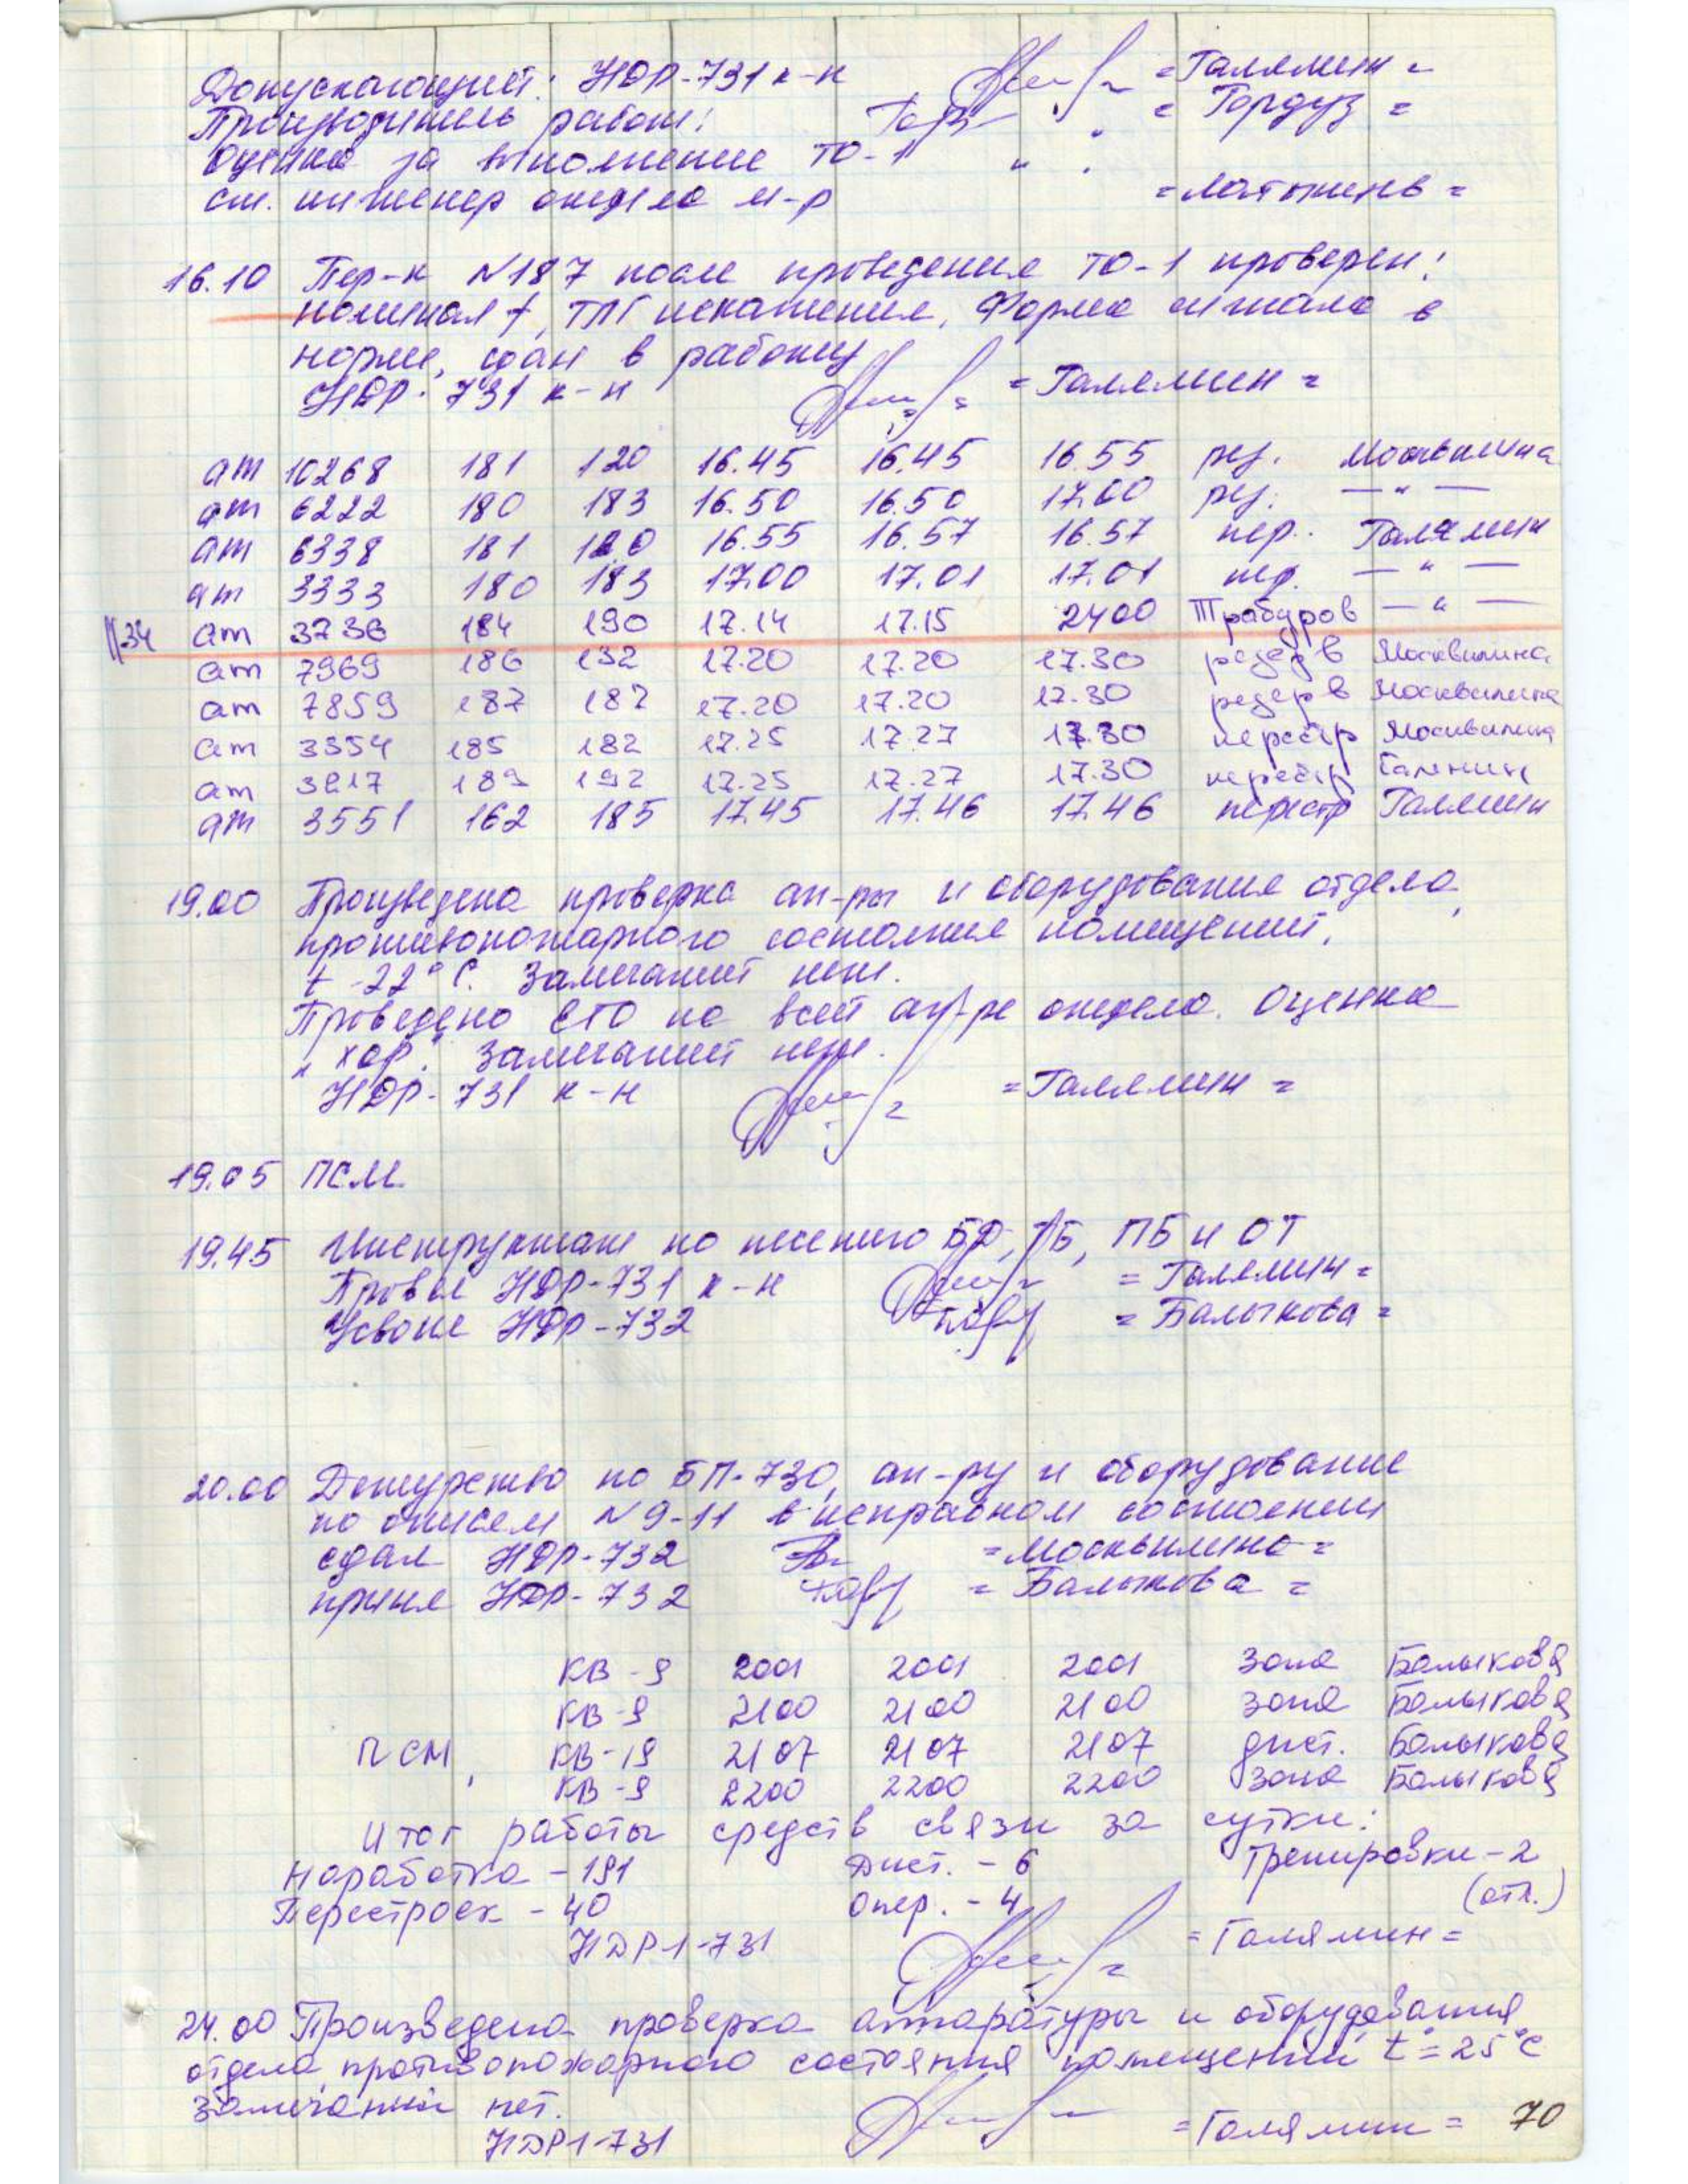 Допускающий: НДР-731 к-н = Галямин =
Производитель работ: = Гордуз =
Оценка за выполнение ТО-1 " "
ст. инженер отдела м-р = Латышень =
16.10 Пер-к №187 после проведения ТО-1 проверен:
номинал f, ТЛГ искажения, Форма сигнала в
норме, сдан в работу
НДР-731 к-н = Галямин =
ат 10268 181 120 16.45 16.45 16.55 рез. Москвилина
ат 6222 180 183 16.50 16.50 17.00 рез. — " —
ат 6338 181 120 16.55 16.57 16.57 пер. Галямин
ат 3333 180 183 17.00 17.01 17.01 пер. — " —
134 ат 3736 184 190 17.14 17.15 2400 Трабуров — " —
ат 7969 186 132 17.20 17.20 17.30 резерв Москвилина
ат 7859 187 187 17.20 17.20 17.30 резерв Москвилина
ат 3354 185 182 17.25 17.27 17.30 перестр Москвилина
ат 3817 189 192 17.25 17.27 17.30 перестр Галямин
ат 3551 162 185 17.45 17.46 17.46 перестр Галямин
19.00 Произведена проверка ап-ры и оборудования отдела,
противопожарного состояния помещений,
t -22°С. Замечаний нет.
Проведено ЕТО на всей ап-ре отдела. Оценка
"хор". Замечаний нет.
НДР-731 к-н = Галямин =
19.05 ПСМ
19.45 Инструктаж по несению БД, ТБ, ПБ и ОТ
Провел НДР-731 к-н = Галямин =
Усвоил НДР-732 = Балыкова =
20.00 Дежурство по БП-730, ап-ру и оборудование
по описям №9-11 в исправном состоянии
сдал НДР-732 = Москвилина =
принял НДР-732 = Балыкова =
КВ-9 2001 2001 2001 зона Балыкова
КВ-9 2100 2100 2100 зона Балыкова
ПСМ, КВ-19 2107 2107 2107 дист. Балыкова
КВ-9 2200 2200 2200 зона Балыкова
Итог работы средств связи за сутки:
Наработка - 191 Дист. - 6 Тренировки - 2
Перестроек - 40 Опер. - 4 (отл.)
НДР1-731 = Галямин =
24.00 Произведена проверка аппаратуры и оборудования
отдела, противопожарного состояния помещений t°= 25°С
замечаний нет.
НДР1-731 = Галямин = 70